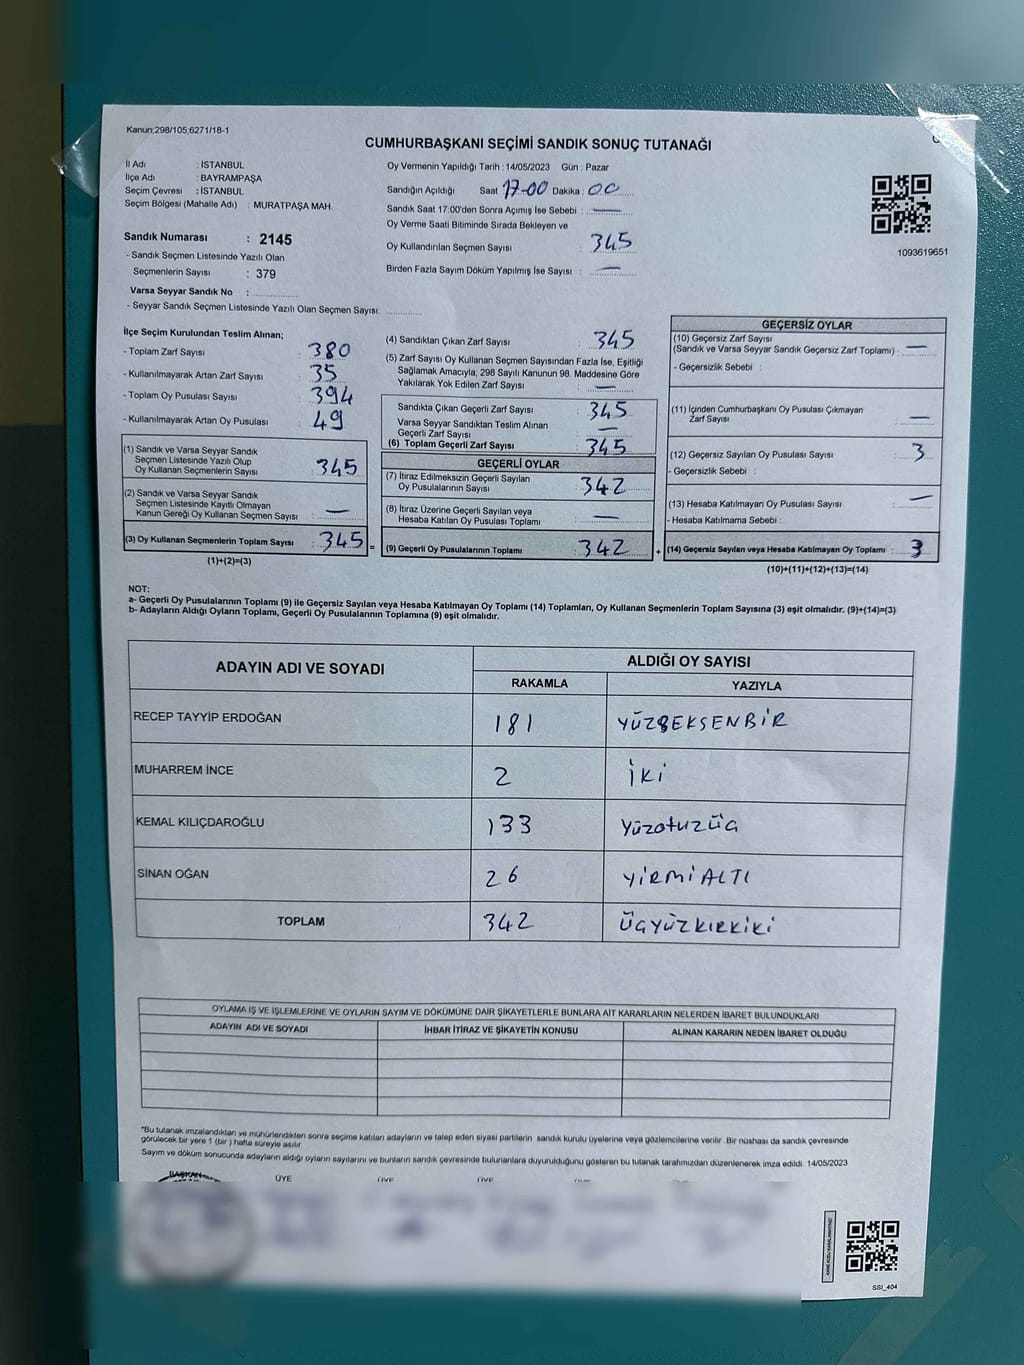 Kanun;298/105,6271/18-1
CUMHURBAŞKANI SEÇİMİ SANDIK SONUÇ TUTANAĞI
İl Adı : İSTANBUL
İlçe Adı : BAYRAMPAŞA
Seçim Çevresi : İSTANBUL
Seçim Bölgesi (Mahalle Adı) : MURATPAŞA MAH.
Sandık Numarası : 2145
- Sandık Seçmen Listesinde Yazılı Olan
Seçmenlerin Sayısı : 379
Varsa Seyyar Sandık No :
- Seyyar Sandık Seçmen Listesinde Yazılı Olan Seçmen Sayısı:
Oy Vermenin Yapıldığı Tarih : 14/05/2023 Gün : Pazar
Sandığın Açıldığı Saat 17-00 Dakika : 00
Sandık Saat 17:00'den Sonra Açımış İse Sebebi : —
Oy Verme Saati Bitiminde Sırada Bekleyen ve
Oy Kullandırılan Seçmen Sayısı : 345
Birden Fazla Sayım Döküm Yapılmış İse Sayısı : —
1093619651
İlçe Seçim Kurulundan Teslim Alınan;
- Toplam Zarf Sayısı : 380
- Kullanılmayarak Artan Zarf Sayısı : 35
- Toplam Oy Pusulası Sayısı : 394
- Kullanılmayarak Artan Oy Pusulası : 49
(1) Sandık ve Varsa Seyyar Sandık
Seçmen Listesinde Yazılı Olup
Oy Kullanan Seçmenlerin Sayısı : 345
(2) Sandık ve Varsa Seyyar Sandık
Seçmen Listesinde Kayıtlı Olmayan
Kanun Gereği Oy Kullanan Seçmen Sayısı : —
(3) Oy Kullanan Seçmenlerin Toplam Sayısı : 345 =
(1)+(2)=(3)
(4) Sandıktan Çıkan Zarf Sayısı : 345
(5) Zarf Sayısı Oy Kullanan Seçmen Sayısından Fazla İse, Eşitliği
Sağlamak Amacıyla; 298 Sayılı Kanunun 98. Maddesine Göre
Yakılarak Yok Edilen Zarf Sayısı : —
Sandıkta Çıkan Geçerli Zarf Sayısı : 345
Varsa Seyyar Sandıktan Teslim Alınan
Geçerli Zarf Sayısı : —
(6) Toplam Geçerli Zarf Sayısı : 345
GEÇERLİ OYLAR
(7) İtiraz Edilmeksizin Geçerli Sayılan
Oy Pusulalarının Sayısı : 342
(8) İtiraz Üzerine Geçerli Sayılan veya
Hesaba Katılan Oy Pusulası Toplamı : —
(9) Geçerli Oy Pusulalarının Toplamı : 342 +
GEÇERSİZ OYLAR
(10) Geçersiz Zarf Sayısı
(Sandık ve Varsa Seyyar Sandık Geçersiz Zarf Toplamı) : —
- Geçersizlik Sebebi :
(11) İçinden Cumhurbaşkanı Oy Pusulası Çıkmayan
Zarf Sayısı : —
(12) Geçersiz Sayılan Oy Pusulası Sayısı : 3
- Geçersizlik Sebebi :
(13) Hesaba Katılmayan Oy Pusulası Sayısı : —
- Hesaba Katılmama Sebebi :
(14) Geçersiz Sayılan veya Hesaba Katılmayan Oy Toplamı : 3
(10)+(11)+(12)+(13)=(14)
NOT:
a- Geçerli Oy Pusulalarının Toplamı (9) ile Geçersiz Sayılan veya Hesaba Katılmayan Oy Toplamı (14) Toplamları, Oy Kullanan Seçmenlerin Toplam Sayısına (3) eşit olmalıdır. (9)+(14)=(3)
b- Adayların Aldığı Oyların Toplamı, Geçerli Oy Pusulalarının Toplamına (9) eşit olmalıdır.
ADAYIN ADI VE SOYADI ALDIĞI OY SAYISI
RAKAMLA YAZIYLA
RECEP TAYYİP ERDOĞAN 181 YÜZSEKSENBİR
MUHARREM İNCE 2 İKİ
KEMAL KILIÇDAROĞLU 133 Yüzotuzüç
SİNAN OĞAN 26 YİRMİALTI
TOPLAM 342 ÜÇYÜZKIRKİKİ
OYLAMA İŞ VE İŞLEMLERİNE VE OYLARIN SAYIM VE DÖKÜMÜNE DAİR ŞİKAYETLERLE BUNLARA AİT KARARLARIN NELERDEN İBARET BULUNDUKLARI
ADAYIN ADI VE SOYADI İHBAR İTİRAZ VE ŞİKAYETİN KONUSU ALINAN KARARIN NEDEN İBARET OLDUĞU
*Bu tutanak imzalandıktan ve mühürlendikten sonra seçime katılan adayların ve talep eden siyasi partilerin sandık kurulu üyelerine veya gözlemcilerine verilir .Bir nüshası da sandık çevresinde
görülecek bir yere 1 (bir ) hafta süreyle asılır.
Sayım ve döküm sonucunda adayların aldığı oyların sayılarını ve bunların sandık çevresinde bulunanlara duyurulduğunu gösteren bu tutanak tarafımızdan düzenlenerek imza edildi. 14/05/2023
BAŞKAN ÜYE ÜYE ÜYE
SSI_404